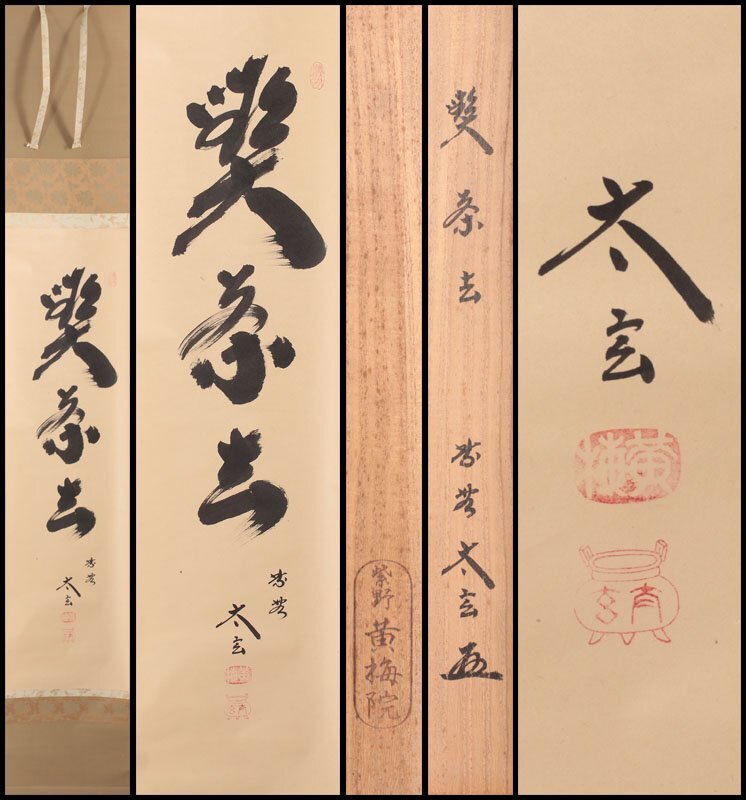 喫茶去
紫野
太玄
喫茶去
紫野
太玄
紫野
黄梅院
喫茶去 紫野 太玄
太玄
黄梅